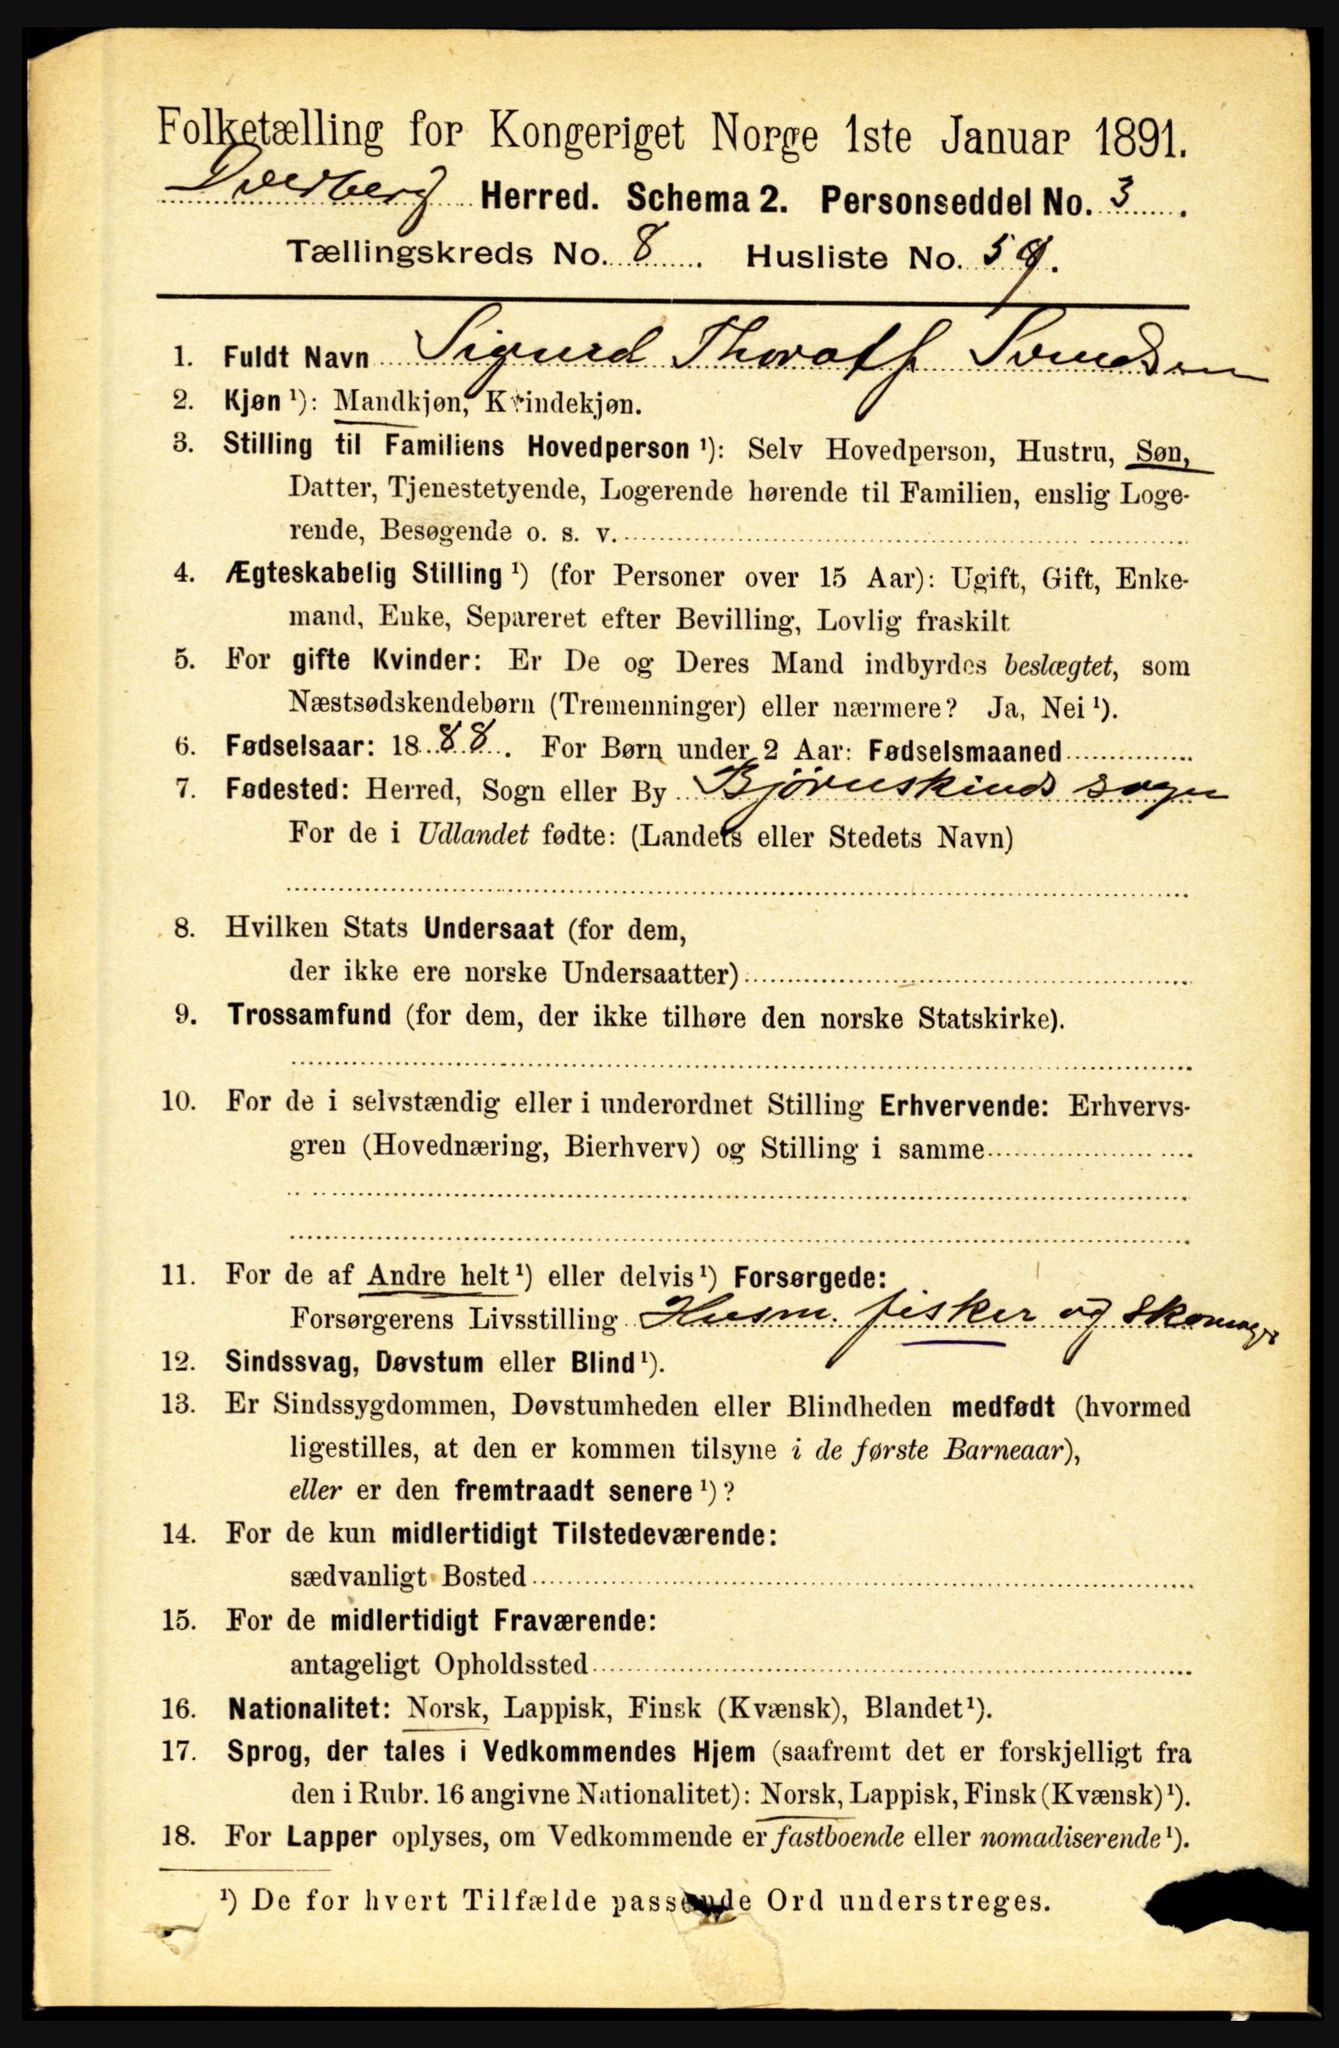 Folketælling for Kongeriget Norge 1ste Januar 1891.
Dverberg Herred. Schema 2. Personseddel No. 3.
Tællingskreds No. 8. Husliste No. 59.
1. Fuldt Navn Sigurd Thorolf Svendsen
2. Kjøn ¹): Mandkjøn, Kvindekjøn.
3. Stilling til Familiens Hovedperson ¹): Selv Hovedperson, Hustru, Søn,
Datter, Tjenestetyende, Logerende hørende til Familien, enslig Loge-
rende, Besøgende o. s. v.
4. Ægteskabelig Stilling ¹) (for Personer over 15 Aar): Ugift, Gift, Enke-
mand, Enke, Separeret efter Bevilling, Lovlig fraskilt
5. For gifte Kvinder: Er De og Deres Mand indbyrdes beslægtet, som
Næstsødskendebørn (Tremenninger) eller nærmere? Ja, Nei ¹).
6. Fødselsaar: 1888. For Børn under 2 Aar: Fødselsmaaned
7. Fødested: Herred, Sogn eller By Bjørnskinds sogn
For de i Udlandet fødte: (Landets eller Stedets Navn)
8. Hvilken Stats Undersaat (for dem,
der ikke ere norske Undersaatter)
9. Trossamfund (for dem, der ikke tilhøre den norske Statskirke).
10. For de i selvstændig eller i underordnet Stilling Erhvervende: Erhvervs-
gren (Hovednæring, Bierhverv) og Stilling i samme
11. For de af Andre helt ¹) eller delvis ¹) Forsørgede:
Forsørgerens Livsstilling Husm. fisker og Skomager
12. Sindssvag, Døvstum eller Blind ¹).
13. Er Sindssygdommen, Døvstumheden eller Blindheden medfødt (hvormed
ligestilles, at den er kommen tilsyne i de første Barneaar),
eller er den fremtraadt senere ¹)?
14. For de kun midlertidigt Tilstedeværende:
sædvanligt Bosted
15. For de midlertidigt Fraværende:
antageligt Opholdssted
16. Nationalitet: Norsk, Lappisk, Finsk (Kvænsk), Blandet ¹).
17. Sprog, der tales i Vedkommendes Hjem (saafremt det er forskjelligt fra
den i Rubr. 16 angivne Nationalitet): Norsk, Lappisk, Finsk (Kvænsk) ¹).
18. For Lapper oplyses, om Vedkommende er fastboende eller nomadiserende ¹).
¹) De for hvert Tilfælde passende Ord understreges.